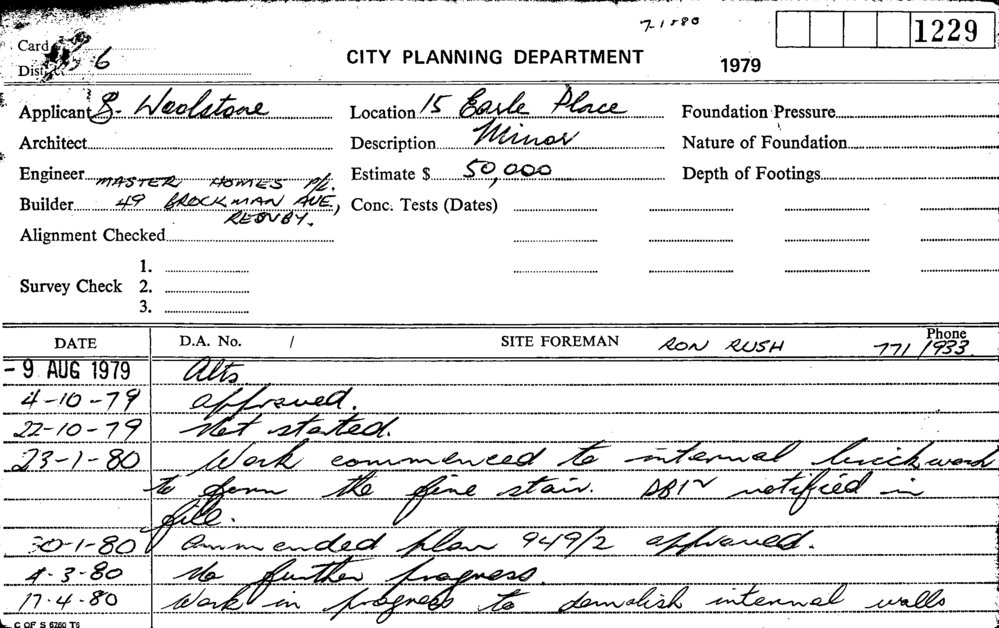 7-1-80
1229
Card
CITY PLANNING DEPARTMENT
1979
District 6
Applicant Woolstone
Location 15 Earle Place
Foundation Pressure
Architect
Description Minor
Nature of Foundation
Engineer
Estimate $ 50,000
Depth of Footings
MASTER HOMES P/L.
Builder 49 BROCKMAN AVE,
REVESBY.
Conc. Tests (Dates)
Alignment Checked
1.
Survey Check 2.
3.
DATE D.A. No. / SITE FOREMAN RON RUSH Phone 771/1933
- 9 AUG 1979 Alts
4-10-79 approved.
22-10-79 Not started.
23-1-80 Work commenced to internal brickwork
to form the fire stair. notified in
file.
30-1-80 Ammended plan 949/2 approved.
4-3-80 No further progress.
17-4-80 Work in progress to demolish internal walls
C OF S 6760 T6